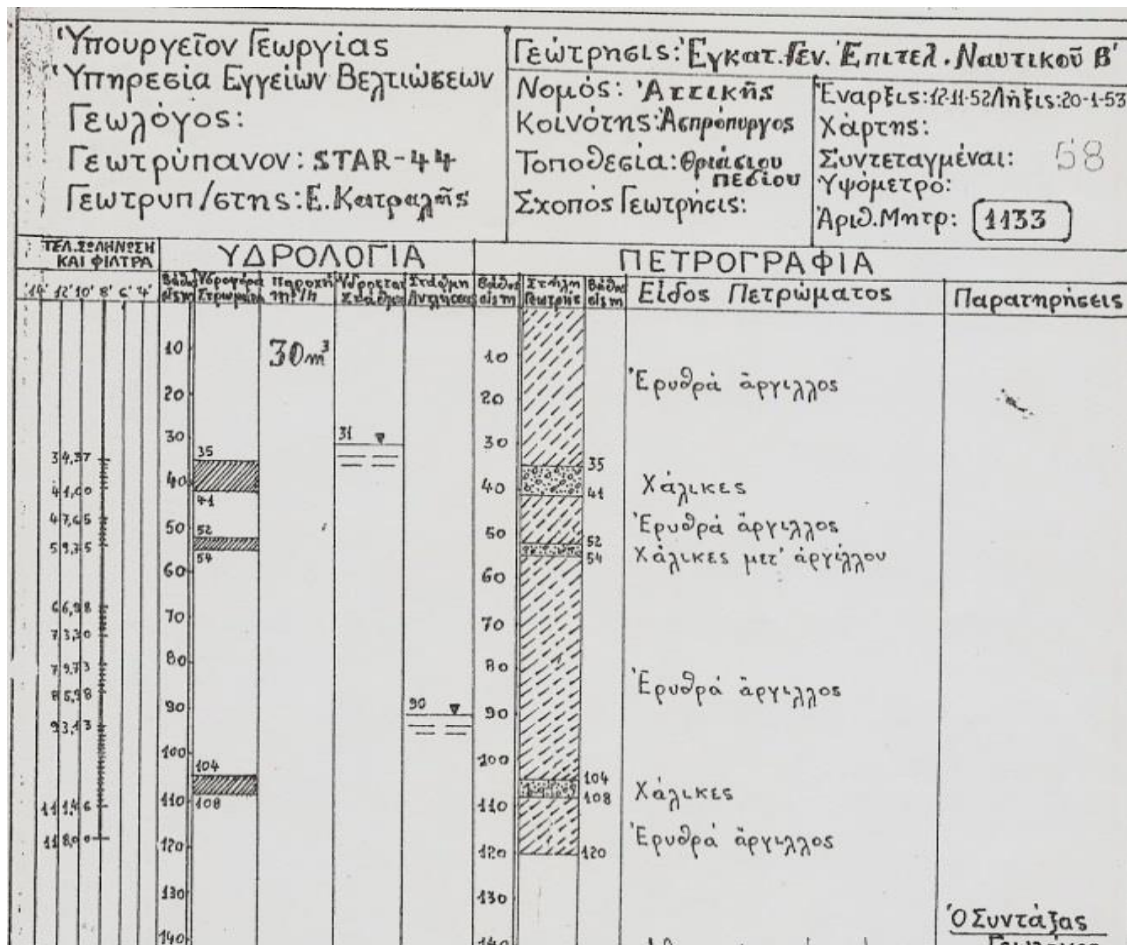 Ὑπουργεῖον Γεωργίας
Ὑπηρεσία Εγγείων Βελτιώσεων
Γεωλόγος:
Γεωτρύπανον: STAR-44
Γεωτρυπ/στης: Ε. Κατραλῆς
Γεώτρησις: Ἐγκατ. Γεν. Ἐπιτελ. Ναυτικοῦ Β'
Νομός: Ἀττικῆς
Κοινότης: Ἀσπρόπυργος
Τοποθεσία: Θριάσιου
πεσίου
Σχοπός Γεωτρήσις:
Ἔναρξις: 12-11-52/Λῆξις: 20-1-53
Χάρτης:
Συντεταγμέναι: 58
Ὑψόμετρο:
Ἀριθ. Μητρ: 1133
ΤΕΛ. ΣΩΛΗΝΩΣΗ
ΚΑΙ ΦΙΛΤΡΑ
14' 12' 10' 8' 6' 4'
ΥΔΡΟΛΟΓΙΑ
Βάθος εἰς m
Ὑδροφόρα Στρώματα
Παροχή m³/h
Στάθμη Ἀντλήσεως
10
20
30
40
50
60
70
80
90
100
110
120
130
140
30 m³
31
90
35
41
52
54
104
108
34,37
41,00
66,98
73,30
79,73
85,98
93,13
118,00
ΠΕΤΡΟΓΡΑΦΙΑ
Βάθος εἰς m
Στήλη Γεωτρησ
Βάθος εἰς m
Εἶδος Πετρώματος
Παρατηρήσεις
10
20
30
40
50
60
70
80
90
100
110
120
130
140
35
41
52
54
104
108
120
Ἐρυθρά ἄργιλλος
Χάλικες
Ἐρυθρά ἄργιλλος
Χάλικες μετ' ἀργίλλου
Ἐρυθρά ἄργιλλος
Χάλικες
Ἐρυθρά ἄργιλλος
Ὁ Συντάξας